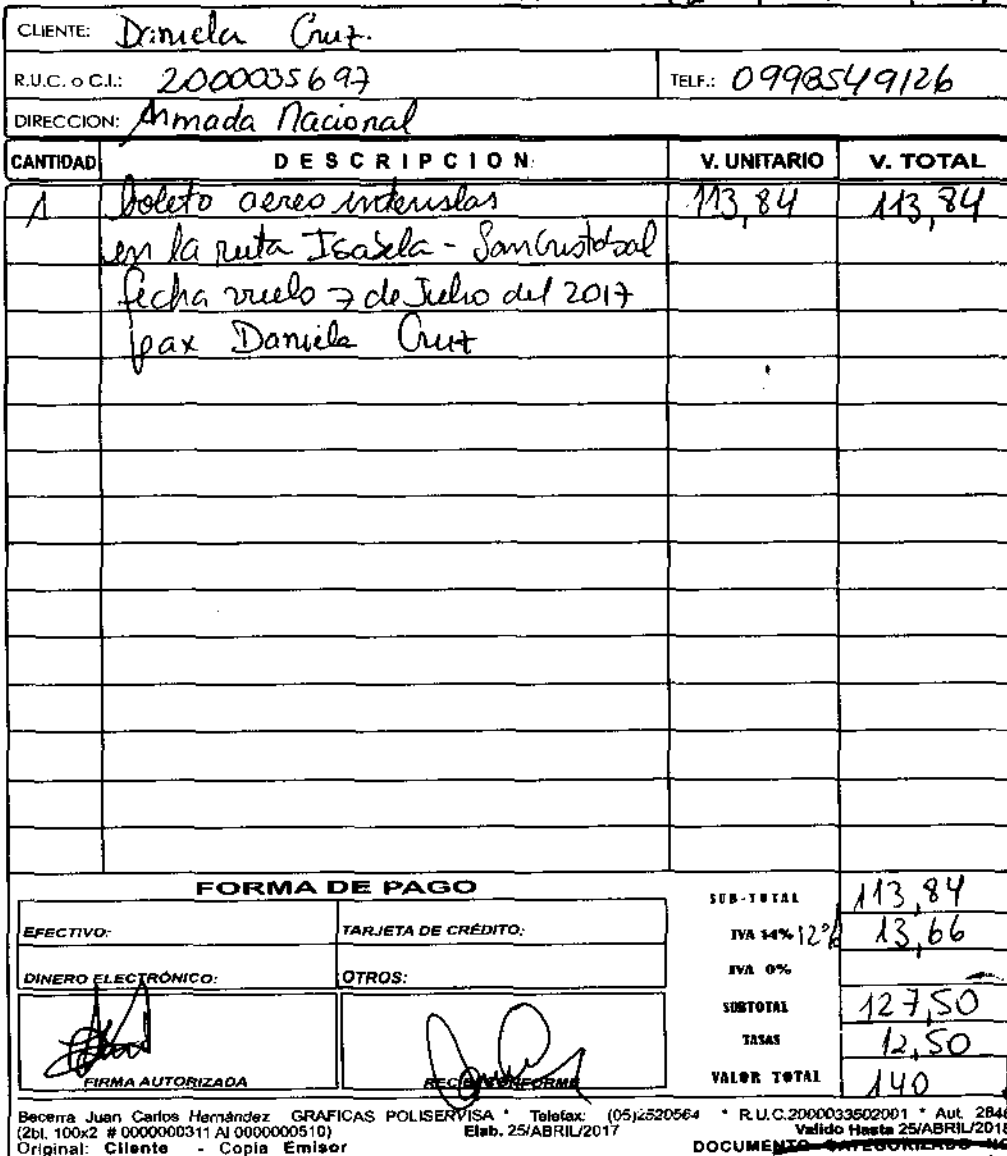 CLIENTE: Daniela Cruz.
R.U.C. o C.I.: 2000035697 TELF.: 0998549126
DIRECCION: Armada Nacional
CANTIDAD DESCRIPCION: V. UNITARIO V. TOTAL
1 boleto aereo interislas 113,84 113,84
en la ruta Isabela - San Cristobal
fecha vuelo 7 de Julio del 2017
pax Daniela Cruz
FORMA DE PAGO
SUB-TOTAL 113,84
EFECTIVO: TARJETA DE CRÉDITO: IVA 14% 12% 13,66
IVA 0%
DINERO ELECTRÓNICO: OTROS:
SUBTOTAL 127,50
TASAS 12,50
FIRMA AUTORIZADA RECIBI CONFORME VALOR TOTAL 140
Becerra Juan Carlos Hernández GRAFICAS POLISERVISA * Telefax: (05)2520564 * R.U.C.2000033502001 * Aut. 2846
(2bl. 100x2 # 0000000311 Al 0000000510) Elab. 25/ABRIL/2017 Valido Hasta 25/ABRIL/2018
Original: Cliente - Copia Emisor DOCUMENTO CATEGORIZADO NO